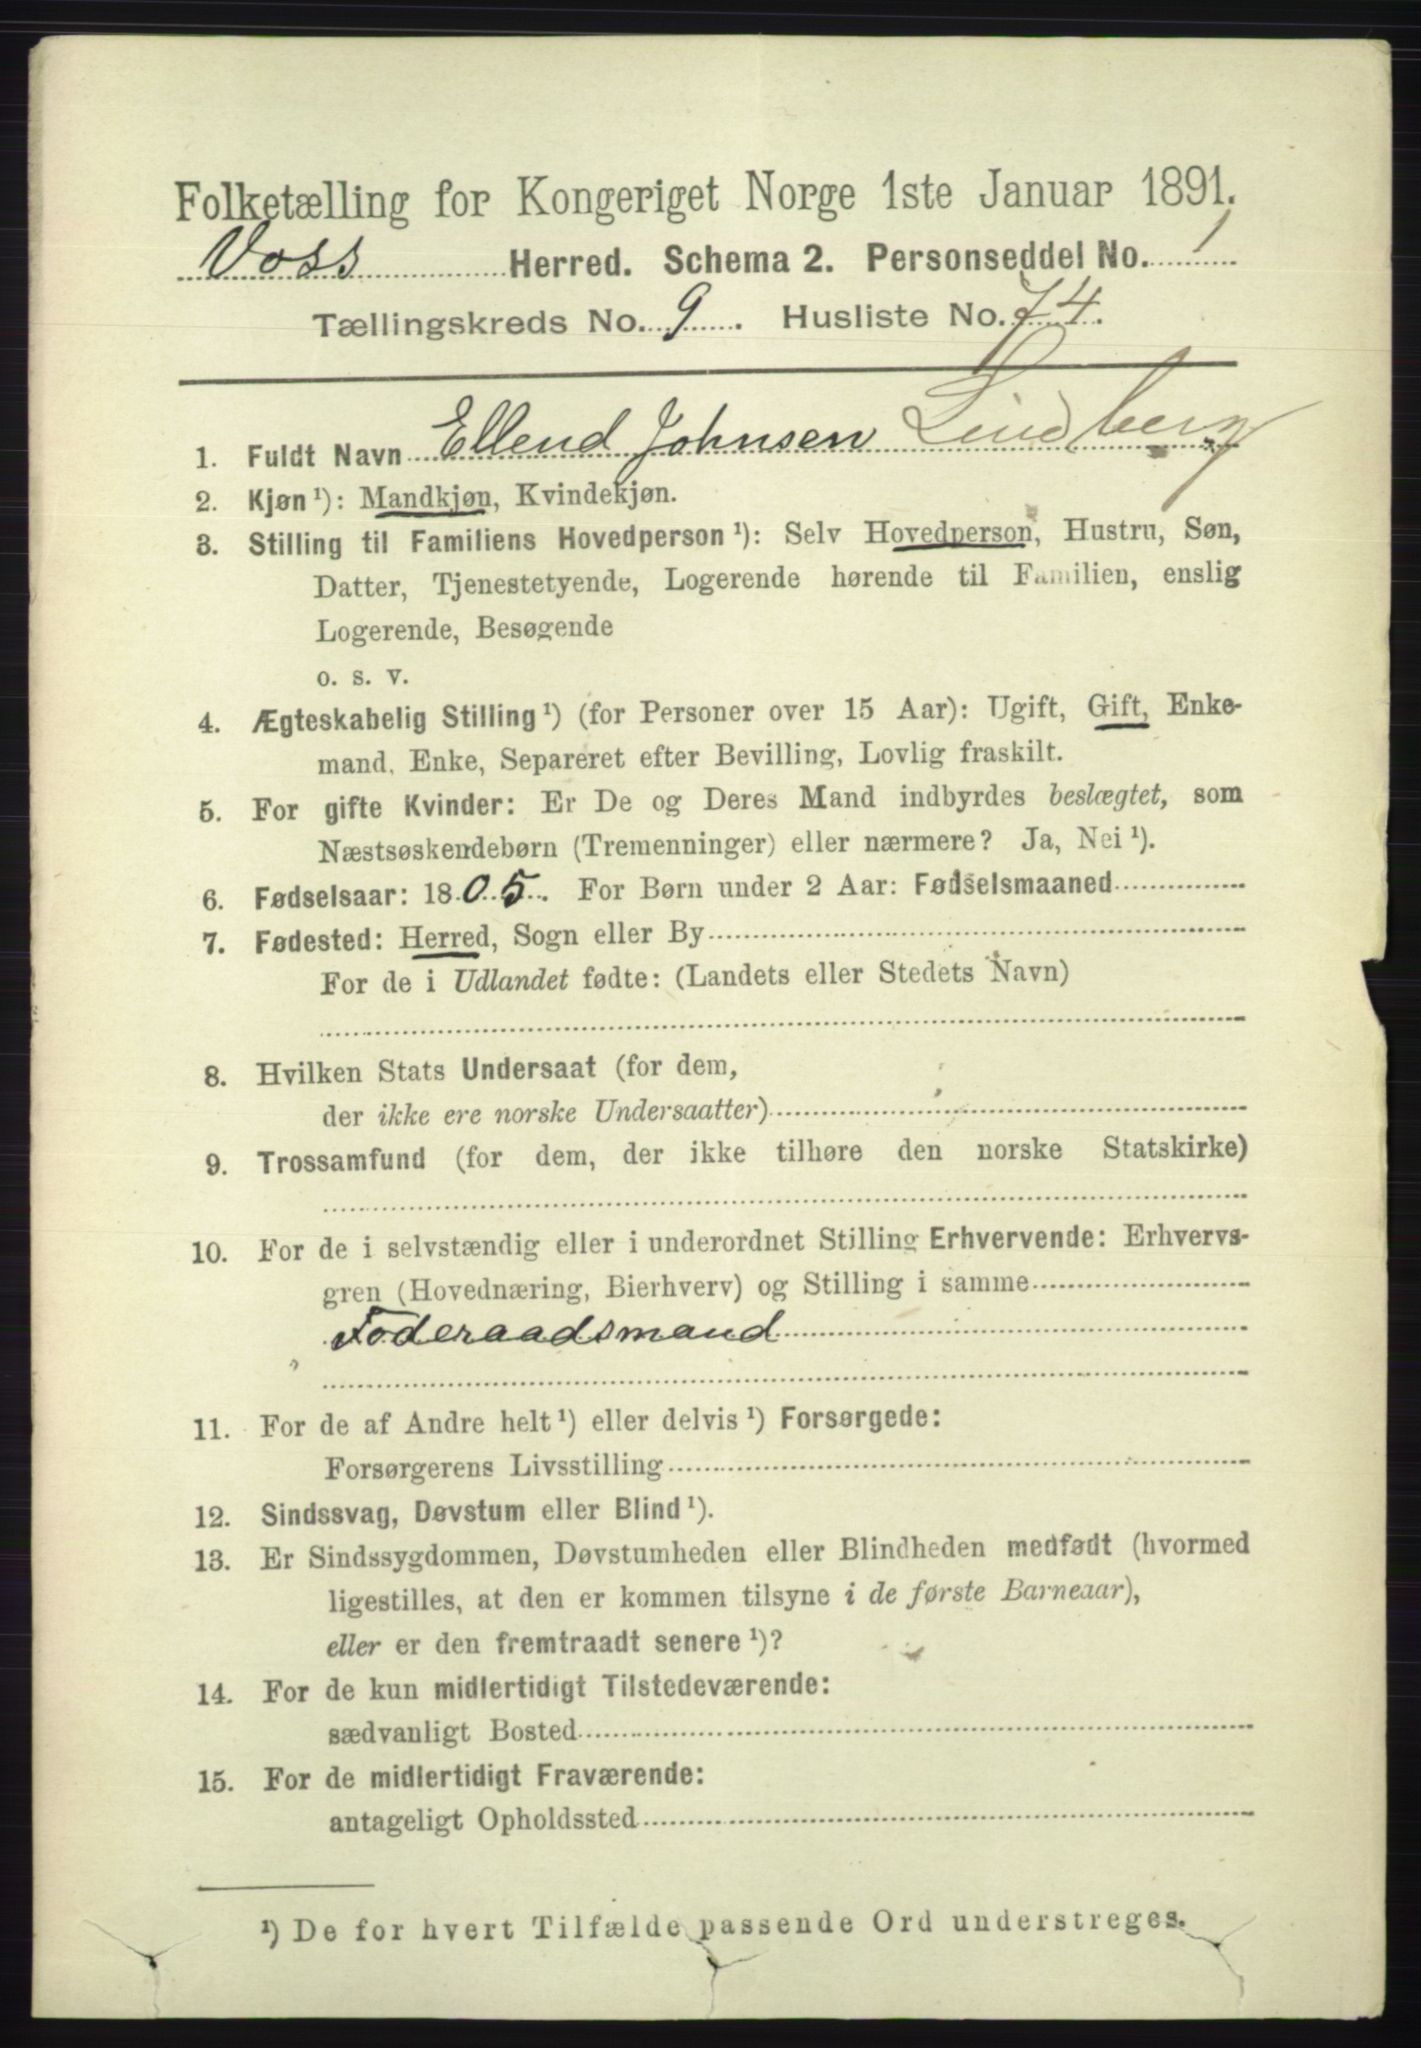 Folketælling for Kongeriget Norge 1ste Januar 1891.
Voss Herred. Schema 2. Personseddel No. 1
Tællingskreds No. 9. Husliste No. 74.
1. Fuldt Navn Ellend Johnsen Lindberg
2. Kjøn ¹): Mandkjøn, Kvindekjøn.
3. Stilling til Familiens Hovedperson ¹): Selv Hovedperson, Hustru, Søn,
Datter, Tjenestetyende, Logerende hørende til Familien, enslig
Logerende, Besøgende
o. s. v.
4. Ægteskabelig Stilling ¹) (for Personer over 15 Aar): Ugift, Gift, Enke-
mand, Enke, Separeret efter Bevilling, Lovlig fraskilt.
5. For gifte Kvinder: Er De og Deres Mand indbyrdes beslægtet, som
Næstsøskendebørn (Tremenninger) eller nærmere? Ja, Nei ¹).
6. Fødselsaar: 1805. For Børn under 2 Aar: Fødselsmaaned
7. Fødested: Herred, Sogn eller By
For de i Udlandet fødte: (Landets eller Stedets Navn)
8. Hvilken Stats Undersaat (for dem,
der ikke ere norske Undersaatter)
9. Trossamfund (for dem, der ikke tilhøre den norske Statskirke)
10. For de i selvstændig eller i underordnet Stilling Erhvervende: Erhvervs-
gren (Hovednæring, Bierhverv) og Stilling i samme
Føderaadsmand
11. For de af Andre helt ¹) eller delvis ¹) Forsørgede:
Forsørgerens Livsstilling
12. Sindssvag, Døvstum eller Blind ¹).
13. Er Sindssygdommen, Døvstumheden eller Blindheden medfødt (hvormed
ligestilles, at den er kommen tilsyne i de første Barneaar),
eller er den fremtraadt senere ¹)?
14. For de kun midlertidigt Tilstedeværende:
sædvanligt Bosted
15. For de midlertidigt Fraværende:
antageligt Opholdssted
¹) De for hvert Tilfælde passende Ord understreges.